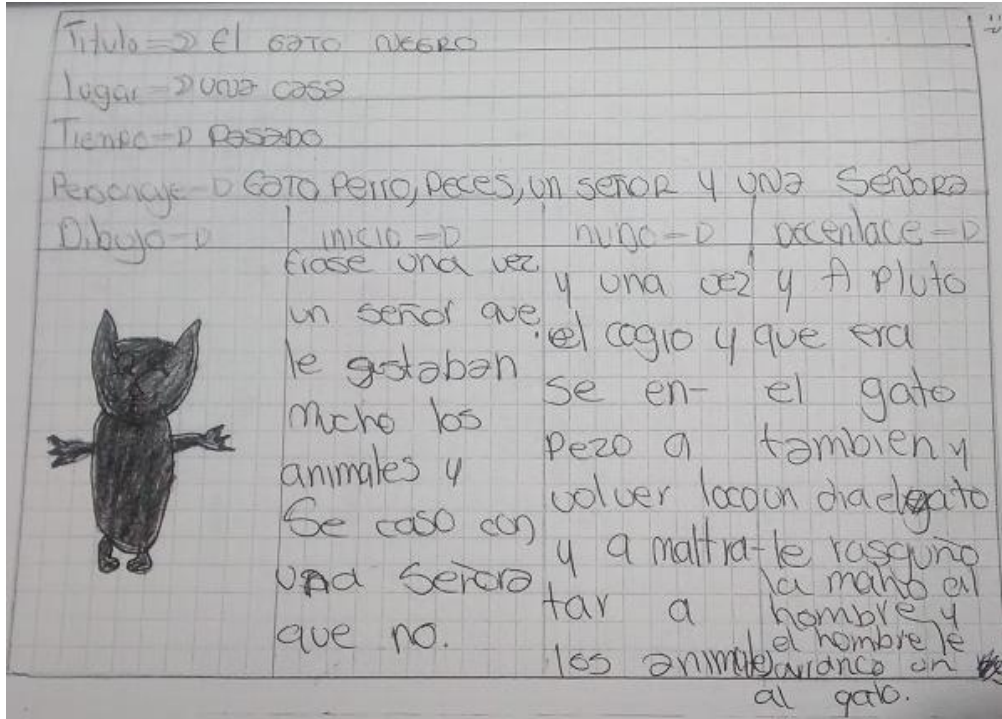 Titulo=D El GATO NEGRO
lugar=D una casa
Tiempo=D PASADO
Personaje=D GATO Perro, Peces, un SEÑOR Y UNA SEÑORA
Dibujo=D
inicio=D
Erase una vez
un señor que
le gustaban
mucho los
animales y
Se caso con
una señora
que no.
nudo=D
y una vez
el cogio y
se en-
pezo a
volver loco
y a maltra-
tar a
los animales
decenlace=D
y A Pluto
que era
el gato
tambien y
un dia el gato
le rasguño
la mano al
hombre y
el hombre le
arranco un
al gato.